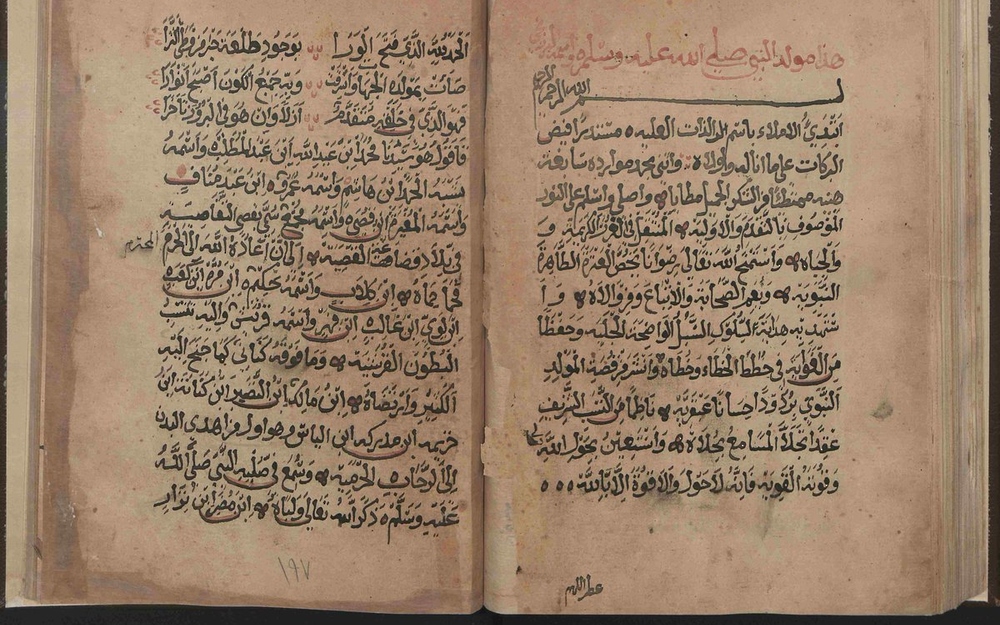 هذا مولد النبي صلى الله عليه وسلم
بسم الله الرحمن الرحيم
ابتدئ الاملاء باسم الذات العليه مستدرا فيض
البركات على ما اناله واولاه واثني بحمد موارده سائغة
هنيه ممتطئا من الشكر الجميل مطاياه واصلي واسلم على النور
الموصوف بالتقدم والاوليه المنتقل في الغرر الكريمة و
والجباه واستمنح الله تعالى رضوانا يخص العترة الطاهرة
النبويه ويعم الصحابة والاتباع ومن والاه و ا
ستمد به هداية لسلوك السبل الواضحة الجليه وحفظا
من الغوايه في خطط الخطاء وخطاه وانشر من قصة المولد
النبوي برودا حسانا عبقريه ناظما من النسب الشريف
عقدا تحلا المسامع بحلاه واستعين بحول الله
وقوته القويه فانه لاحول ولا قوة الا بالله
عطر اللهم
الحمد لله الذي فتح الورا بوجود طلعة
فهو الذي في خلقه متقدم
فاقول هو سيدنا محمد ابن عبد الله ابن عبد المطلب واسمه
شيبة الحمد ابن هاشم واسمه عمرو ابن عبد مناف
واسمه المغيرة ابن قصي واسمه مجمع سمي بقصي لتقاصيه
في بلاد قضاعة القصيه الى ان اعاده الله الى الحرم
المحترم
فحما حماه ابن كلاب واسمه حكيم ابن مرة ابن كعب
ابن لوي ابن غالب ابن فهر واسمه قريش واليه تنتسب
البطون القرشيه وما فوقه كناني كما جنح اليه
الكثير وارتضاه ابن مالك ابن النضر ابن كنانة ابن
خزيمه ابن مدركه ابن الياس وهو اول من اهدى البدن
الى الرحاب الحرميه وسمع في صلبه النبي صلى الله
عليه وسلم ذكر الله تعالى ولباه ابن مضر ابن نزار
١٩٧